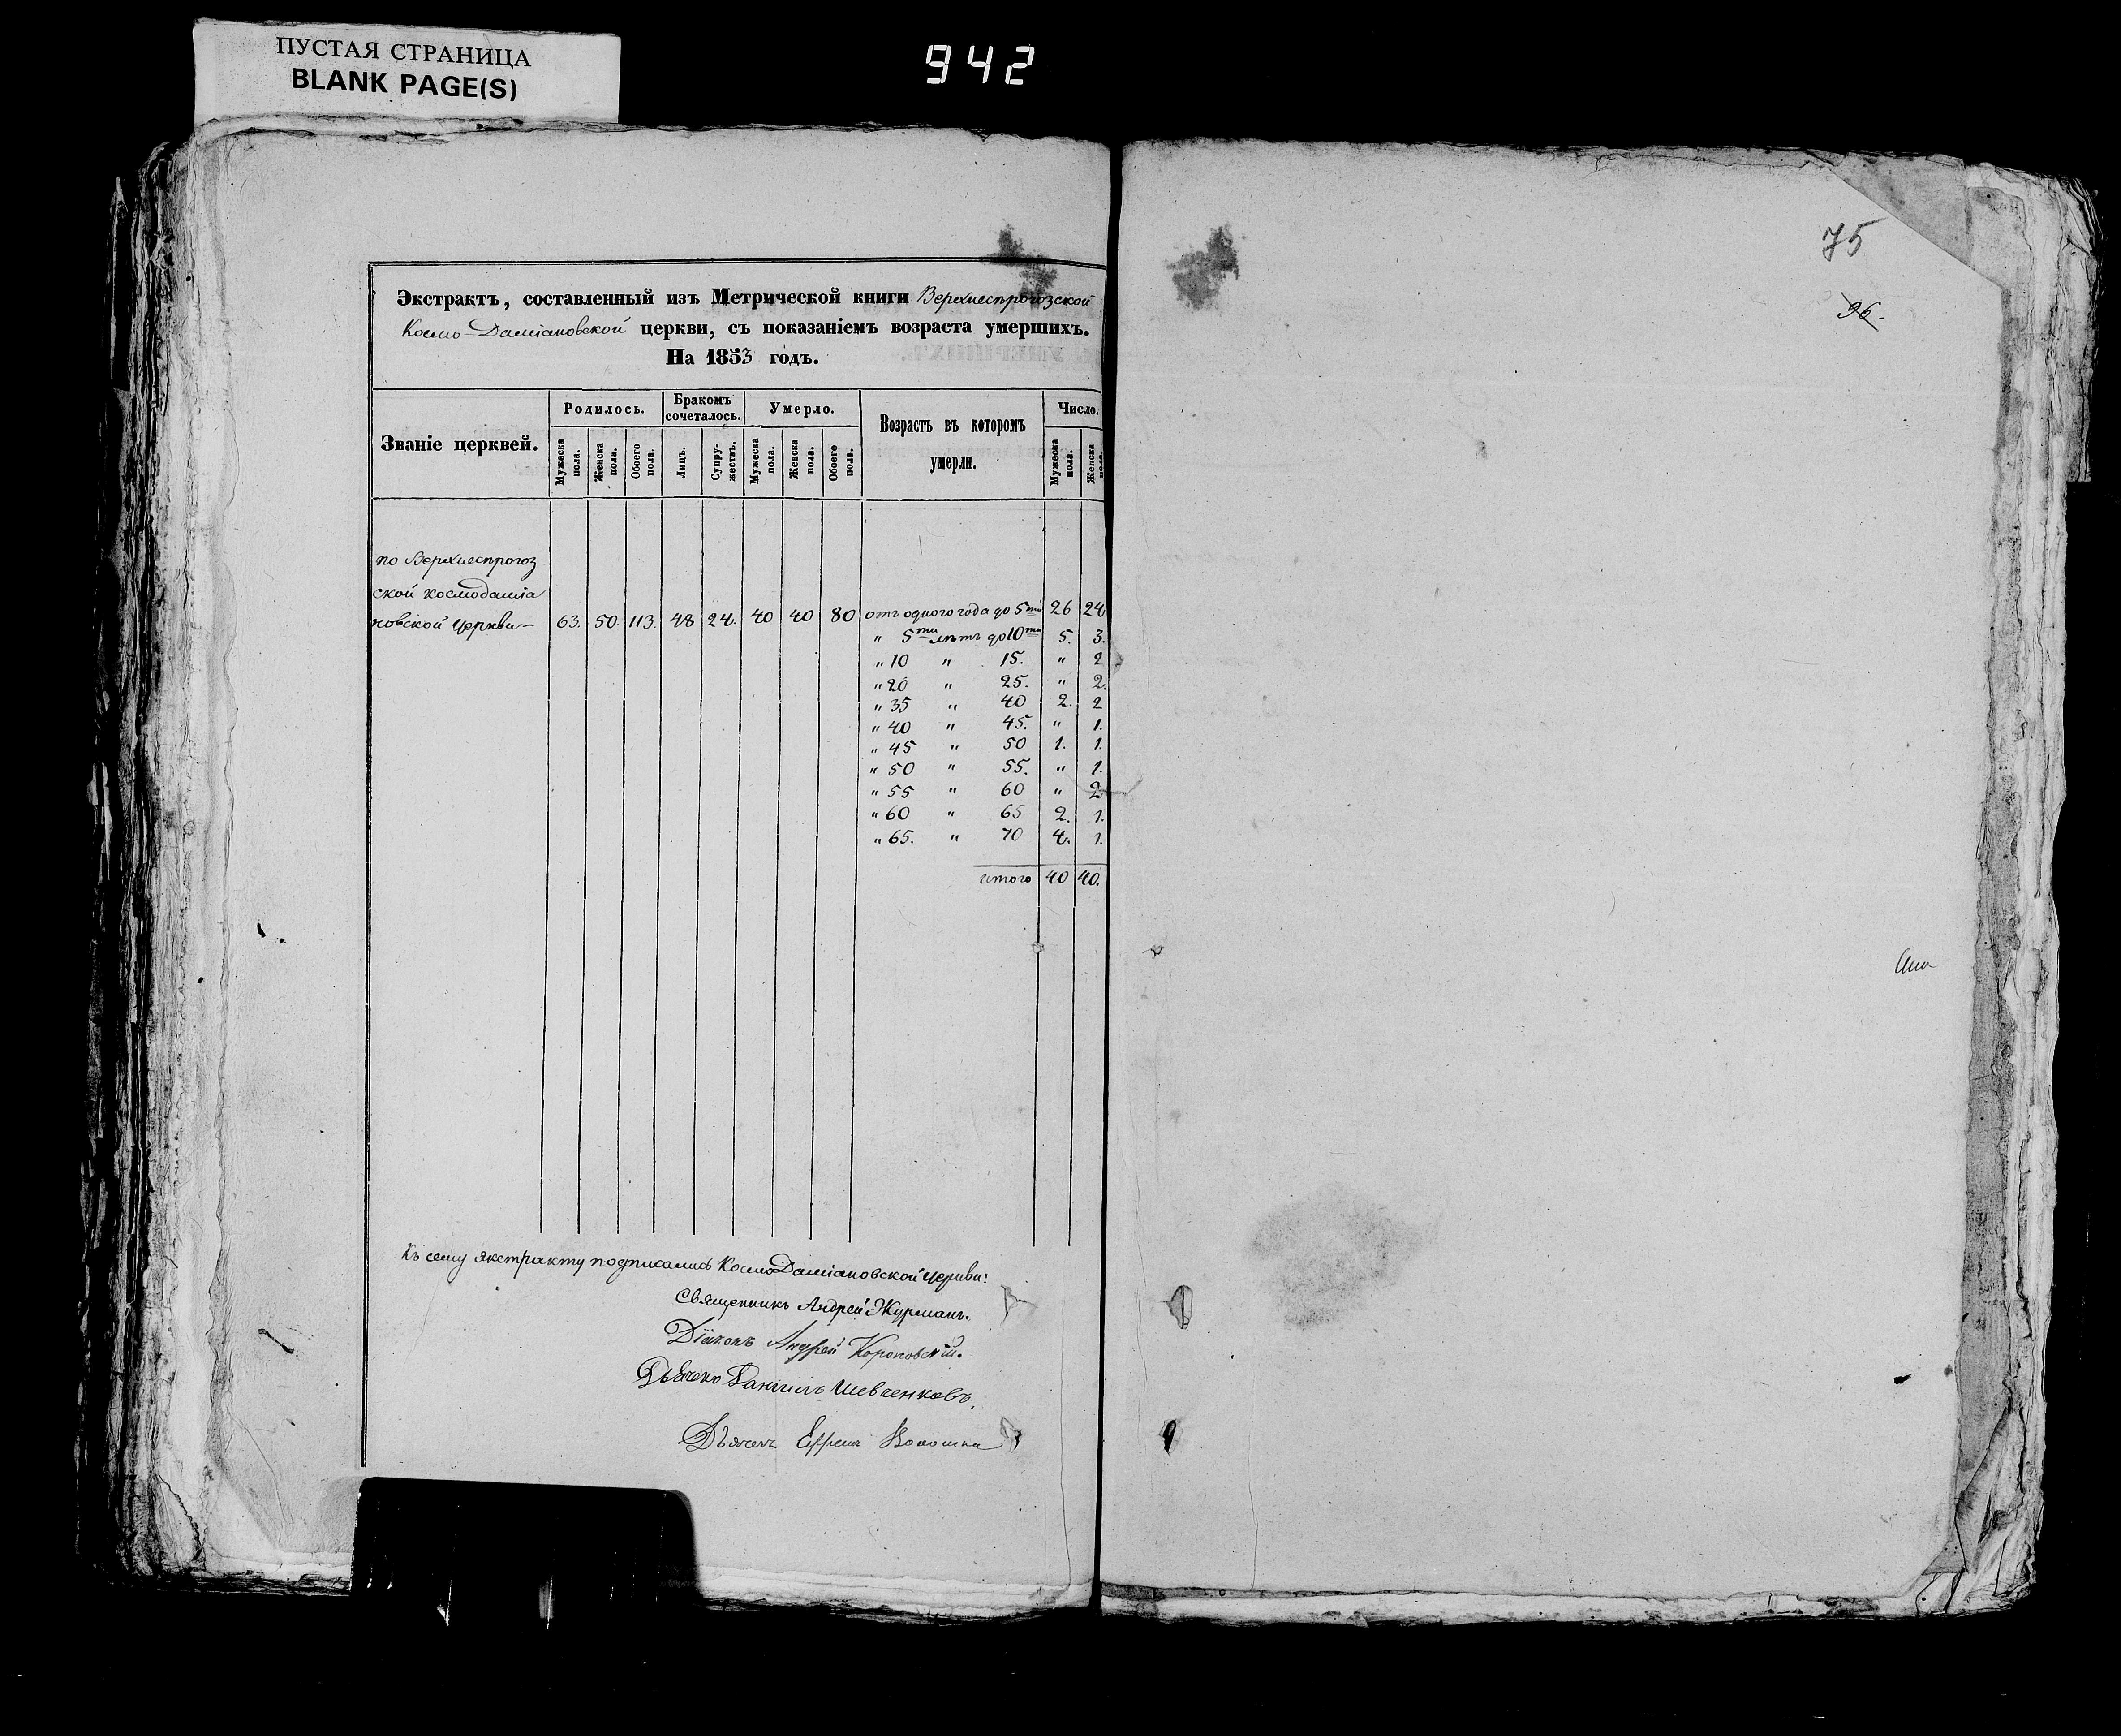 ПУСТАЯ СТРАНИЦА
BLANK PAGE(S)
942
75
96.
Экстрактъ, составленный изъ Метрической книги Верхнеспрогозской
Космо-Даміановской церкви, съ показаніемъ возраста умершихъ.
На 1853 годъ.
Званіе церквей.
Родилось.
Бракомъ сочеталось.
Умерло.
Возрастъ въ которомъ умерли.
Число.
Мужеска пола.
Женска пола.
Обоего пола.
Лицъ.
Супружествъ.
Мужеска пола.
Женска пола.
Обоего пола.
Мужеска пола.
Женска пола.
по Верхнеспрогоз
ской космодаміа
новской церкви- 63. 50. 113. 48 24. 40 40 80 отъ одного года до 5ти 26 24
" 5ти лѣтъ до 10ти 5. 3.
" 10 " 15. " 2
" 20 " 25. " 2.
" 35 " 40 2. 2
" 40 " 45. " 1.
" 45 " 50 1. 1.
" 50 " 55. " 1.
" 55 " 60 " 2
" 60 " 65 2. 1.
" 65. " 70 4. 1.
итого 40 40.
Къ сему экстракту подписались КосмоДаміановской церкви:
Священникъ Андрей Журманъ.
Діаконъ Андрей Короновскій.
Дьячокъ Даніилъ Шевченковъ.
Дьячекъ Ефремъ